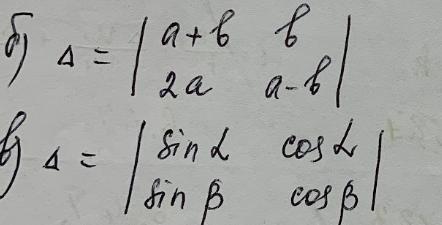 б) Δ = | a+b b |
| 2a a-b |
в) Δ = | sin α cos α |
| sin β cos β |